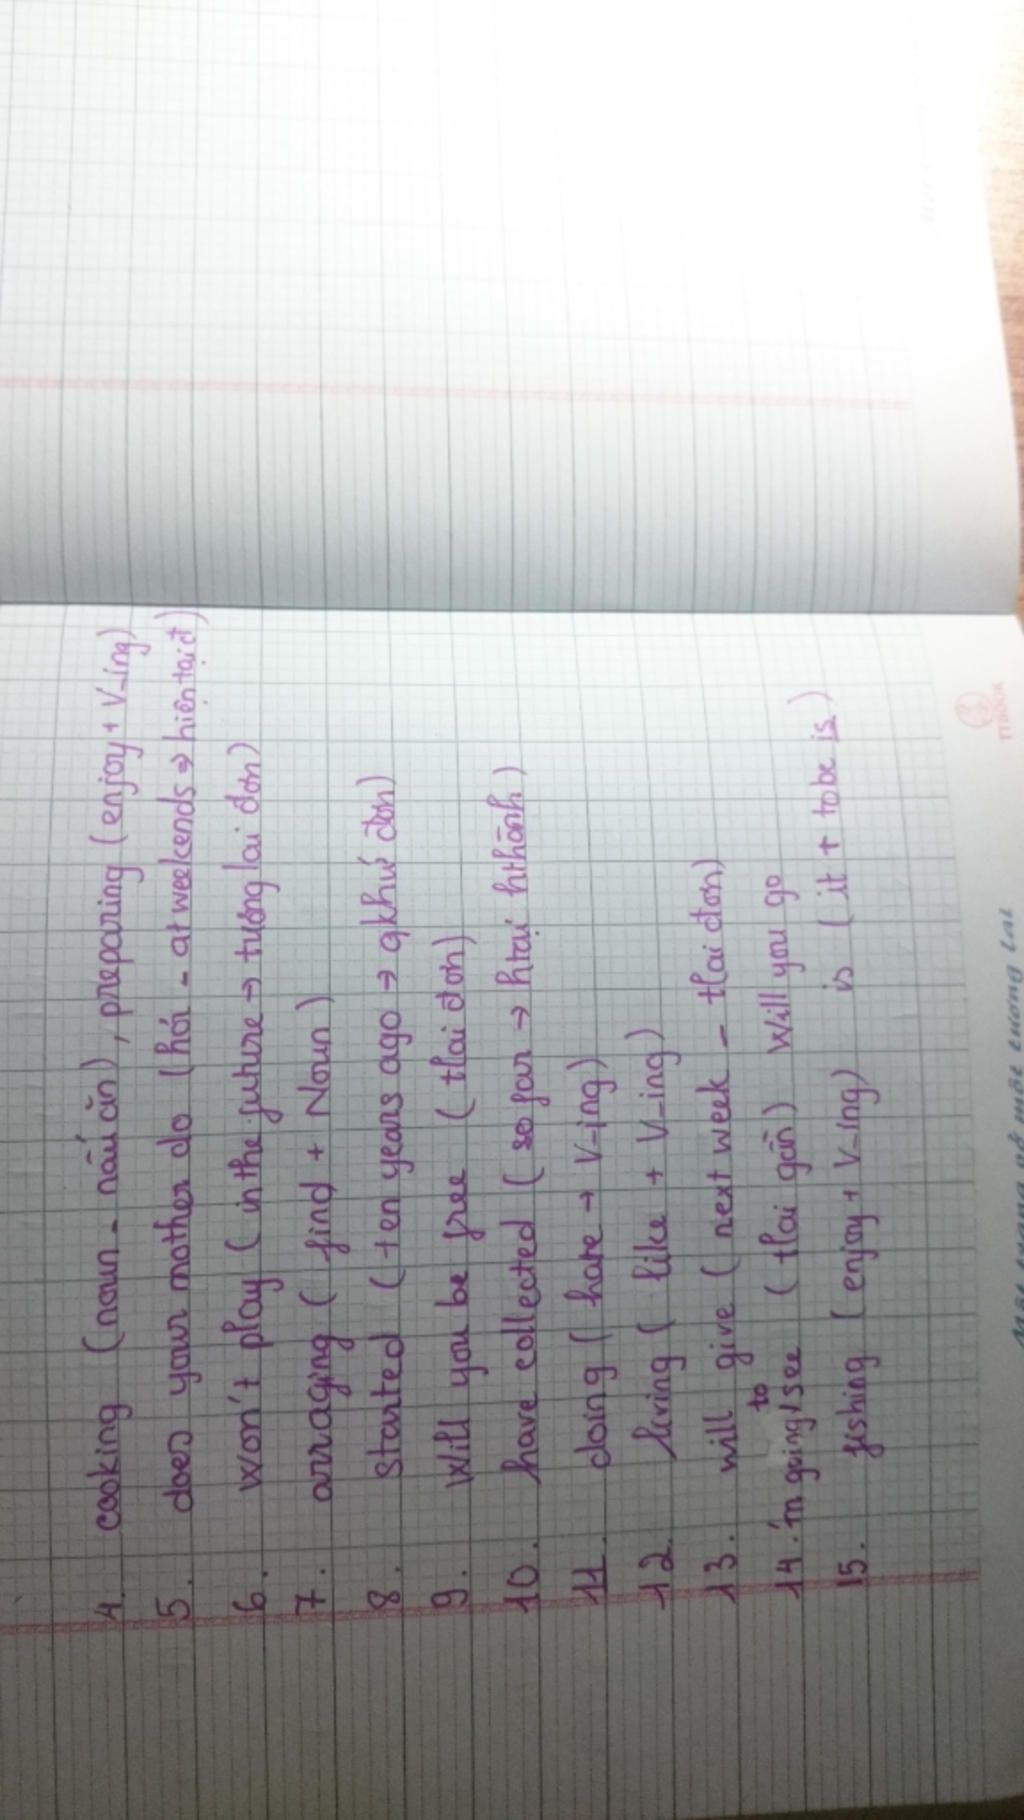 4. cooking (noun - nấu ăn), preparing (enjoy + V_ing)
5. does your mother do (hỏi - at weekends => hiện tại đ)
6. won't play (in the future -> tương lai đơn)
7. arraging (find + Noun)
8. started (ten years ago -> qkhứ đơn)
9. Will you be free (tlai đơn)
10. have collected (so far -> htại hthành)
11. doing (hate -> V-ing)
12. living (like + V-ing)
13. will give (next week - tlai đơn)
14. 'm going to see (tlai gần) Will you go
15. fishing (enjoy + V-ing) is (it + tobe is)
TTBOOK